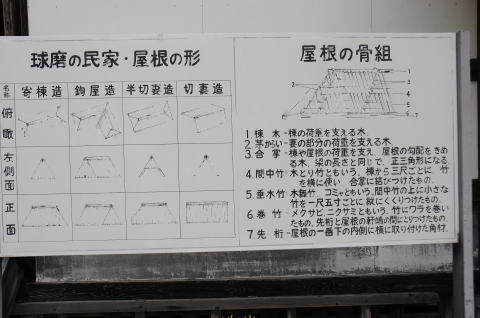 球磨の民家・屋根の形
名称 寄棟造 鉤屋造 半切妻造 切妻造
俯瞰
左側面
正面
屋根の骨組
1 棟木-棟の荷重を支える木.
2 茅がい-妻の部分の荷重を支える木.
3 合掌-棟や屋根の荷重を支え、屋根の勾配をきめ
る木.梁の長さと同じで、正三角形になる.
4 間中竹 木とり竹ともいう、棟から三尺ごとに、竹
を横に使い、合掌に結びつけたもの.
5 垂木竹 木舞竹、コミャともいう.間中竹の上に小さな
竹を一尺五寸ごとに縦にくくりつけたもの.
6 巻竹-メクサビ、ニクサミともいう、竹にワラを巻い
たもの.先桁と屋根の軒端の間にとりつけたもの.
7 先桁-屋根の一番下の内側に横に取り付けた角材.
1
2
3
4
5
6
7